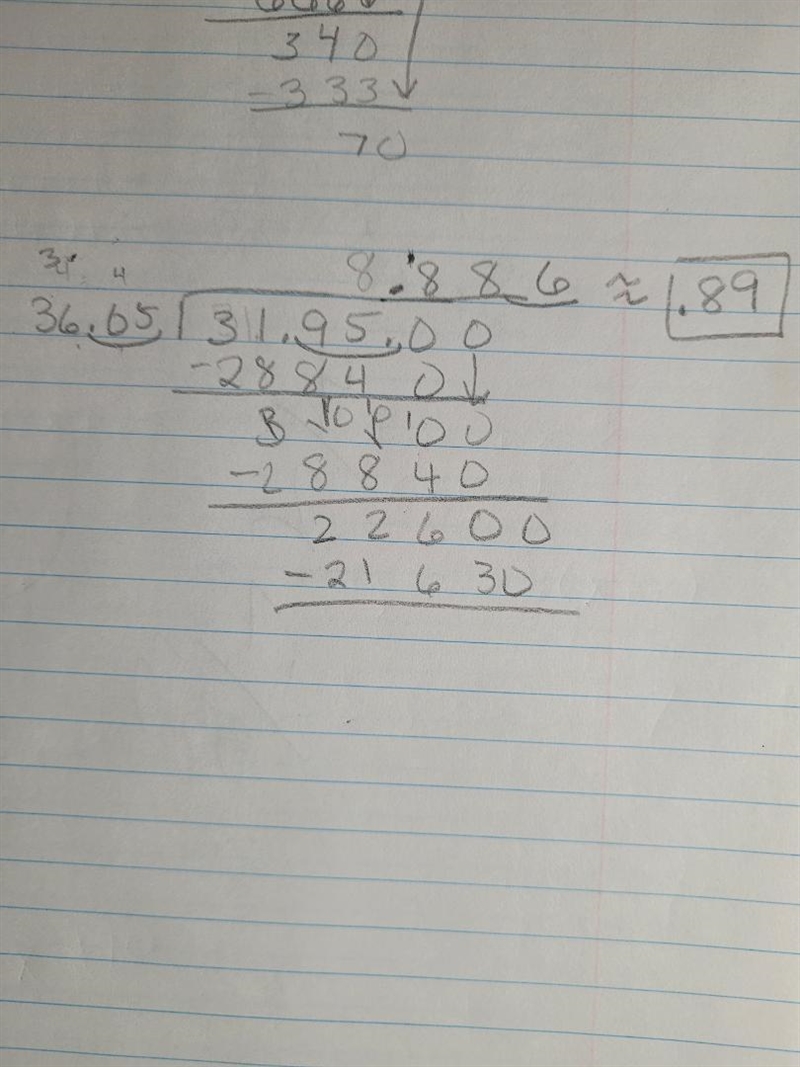 340
-333
70
8.886 ≈ .89
36.05 31.95.00
-28840
3 10 10 100
-28840
22600
-21630